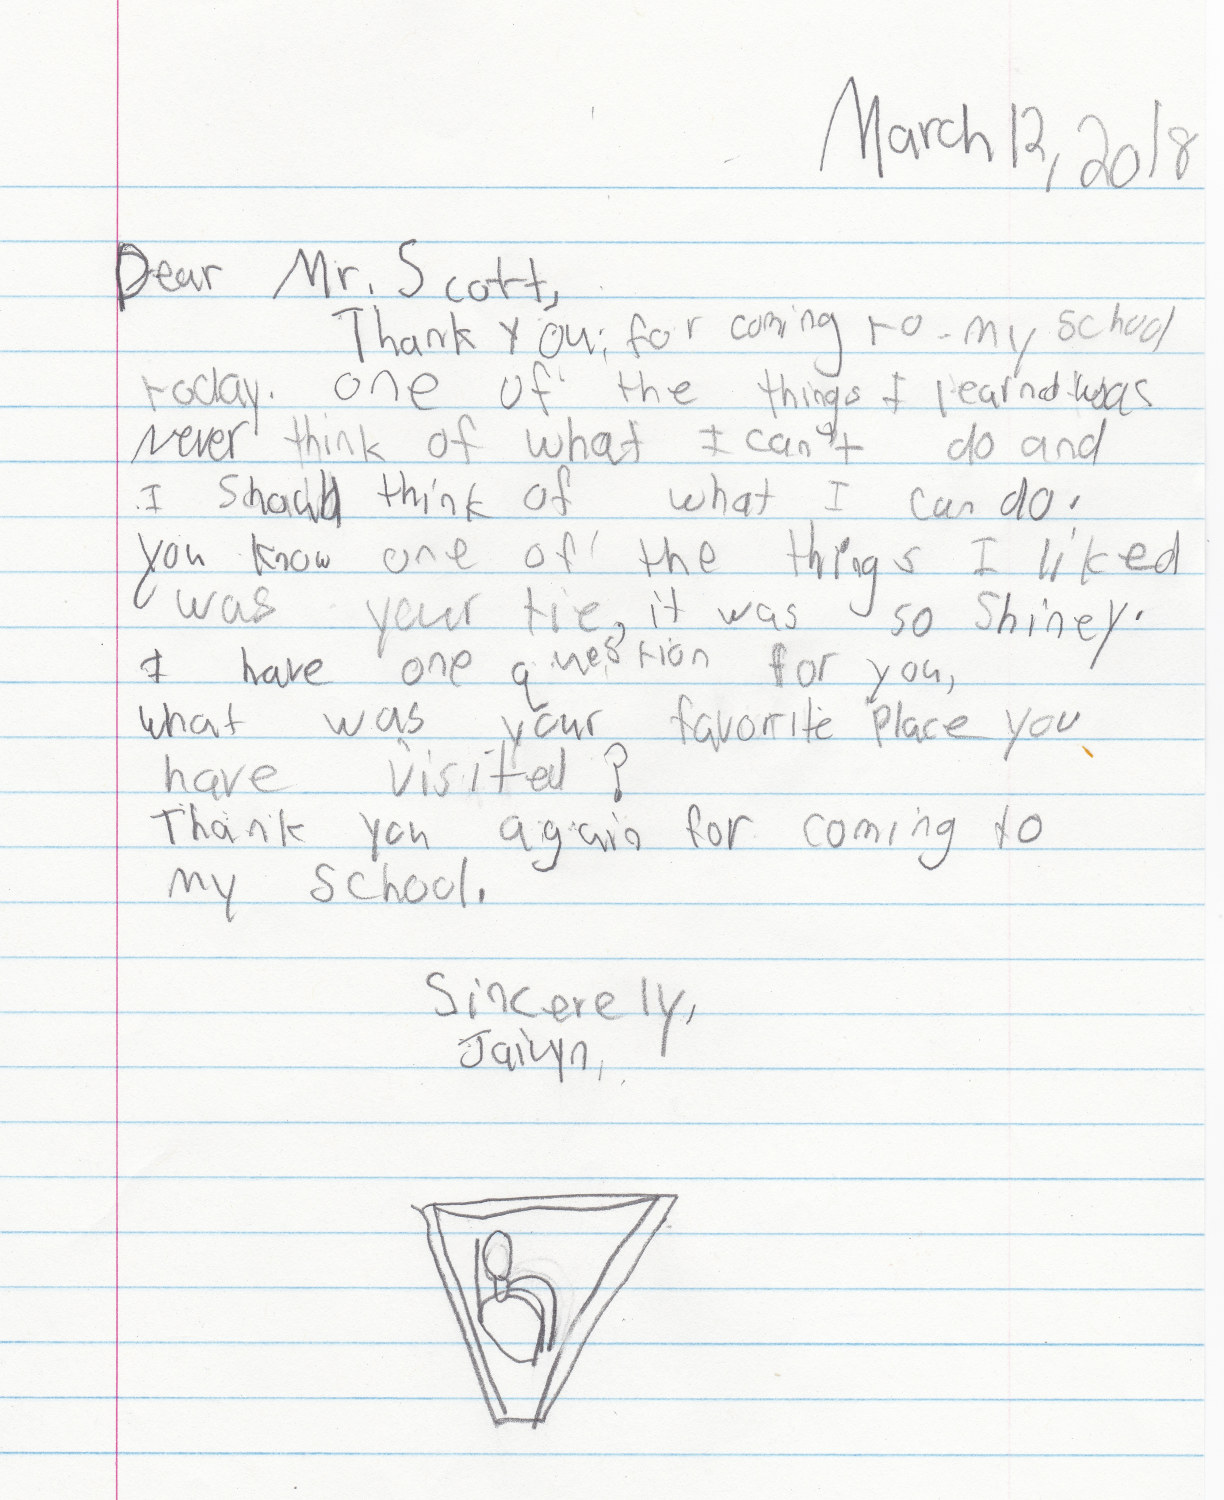 March 12, 2018
Dear Mr. Scott,
Thank you, for coming to my school
today. one of the things I learnd was
Never think of what I can't do and
I should think of what I can do.
you know one of the things I liked
was your tie, it was so Shiney.
I have one question for you,
what was your favorite place you
have visited?
Thank you again for coming to
my school.
Sincerely,
Jailyn,